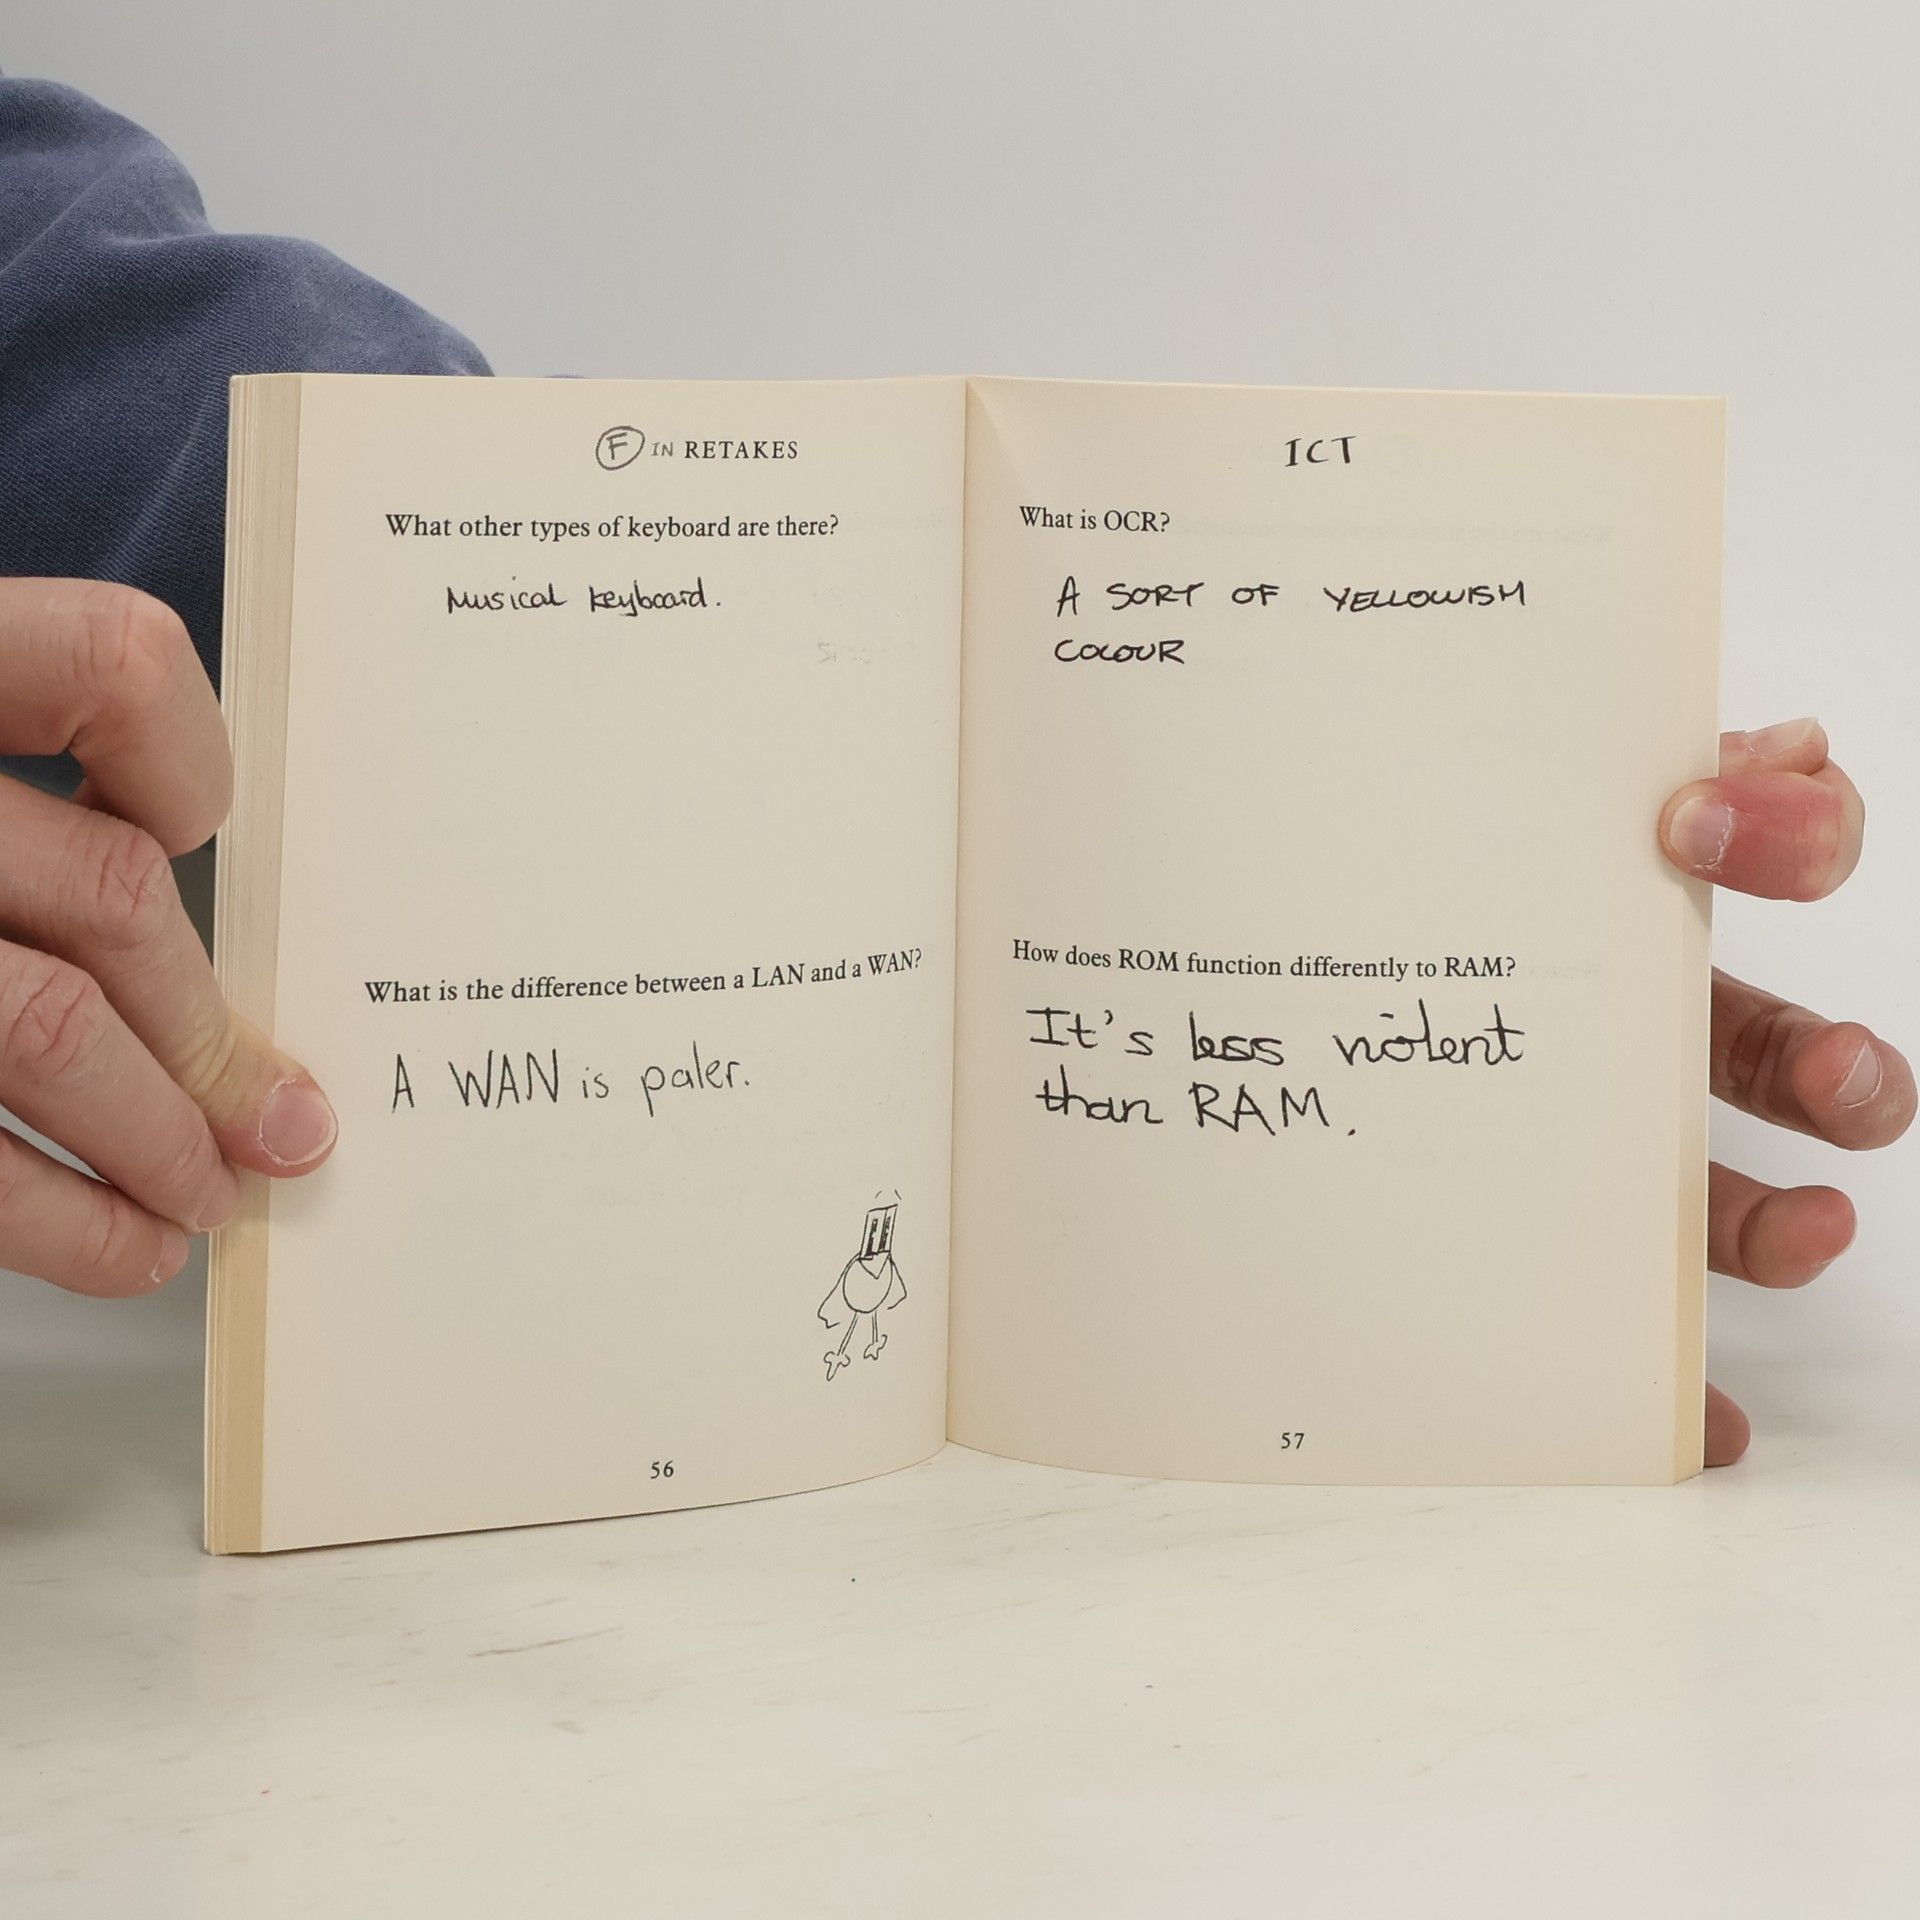 F IN RETAKES
What other types of keyboard are there?
Musical keyboard.
What is the difference between a LAN and a WAN?
A WAN is paler.
56
ICT
What is OCR?
A SORT OF YELLOWISH
COLOUR
How does ROM function differently to RAM?
It's less violent
than RAM.
57